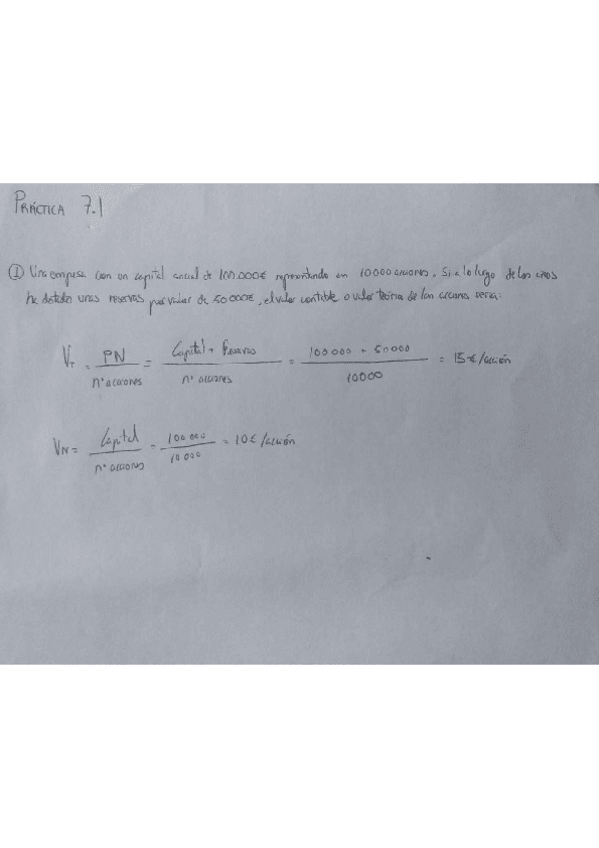 PRÁCTICA 7.1
① Una empresa con un capital social de 100.000€ representando en 10000 acciones. Si a lo largo de los años
ha dotado unas reservas por valor de 50000€, el valor contable o valor teórico de las acciones sería:
VT = PN / nº acciones = Capital + Reservas / nº acciones = 100000 + 50000 / 10000 = 15€/acción
VN = Capital / nº acciones = 100000 / 10000 = 10€/acción